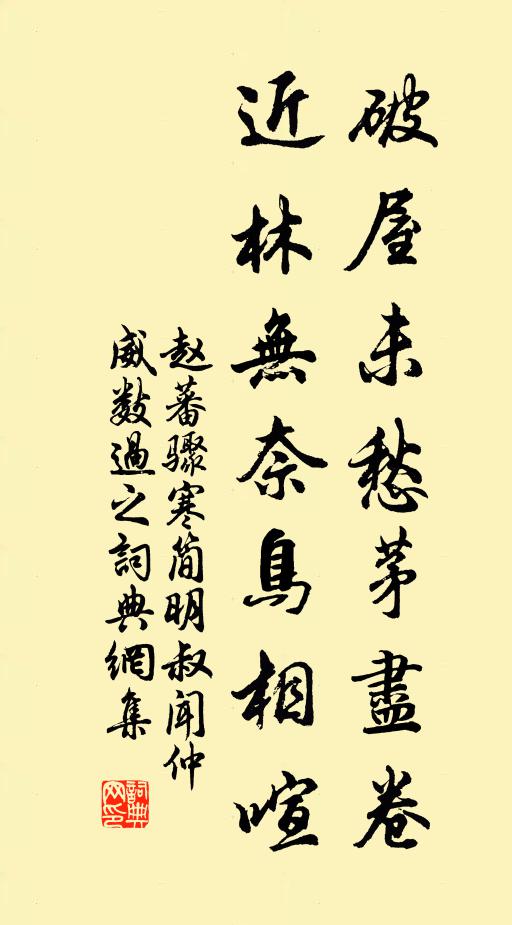 破屋未愁茅盡卷
近林無奈鳥相喧
赵蕃骤寒简明叔闻仲
威数過之詞典網集
詞典网印